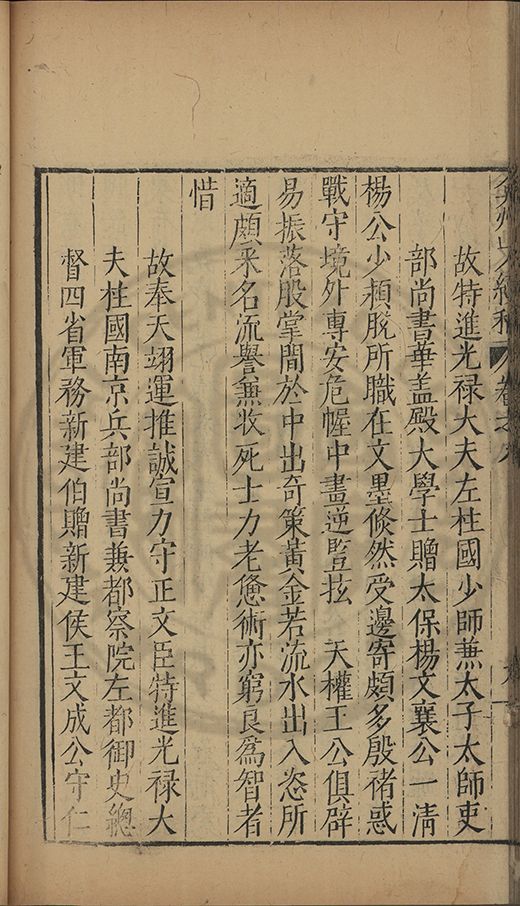 故特進光祿大夫左柱國少師兼太子太師吏
部尚書華蓋殿大學士贈太保楊文襄公一清
楊公少穎脫所職在文墨倐然受邊寄頗多殷褚惑
戰守境外專安危幄中畫逆 天權王公俱辟
易振落股掌間於中出奇策黃金若流水出入恣所
適頗采名流譽兼收死士力老憊術亦窮良為智者
惜
故奉天翊運推誠宣力守正文臣特進光祿大
夫柱國南京兵部尚書兼都察院左都御史總
督四省軍務新建伯贈新建侯王文成公守仁